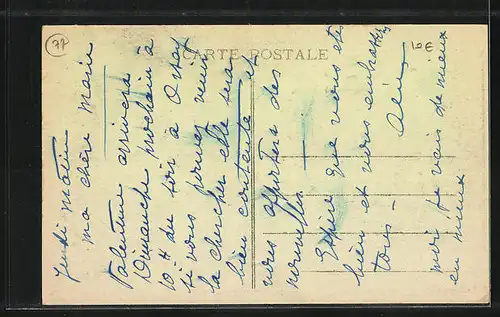 77
CARTE POSTALE
10 E
Jeudi matin
ma chère Marie
Valentine arrivera
Dimanche prochain à
10 H du soir à
si vous pouvez venir
la chercher elle sera
bien contente et
vous apportera des
nouvelles —
espère que vous êtes
bien et vous embrasse
tous —
moi je vais de mieux
en mieux